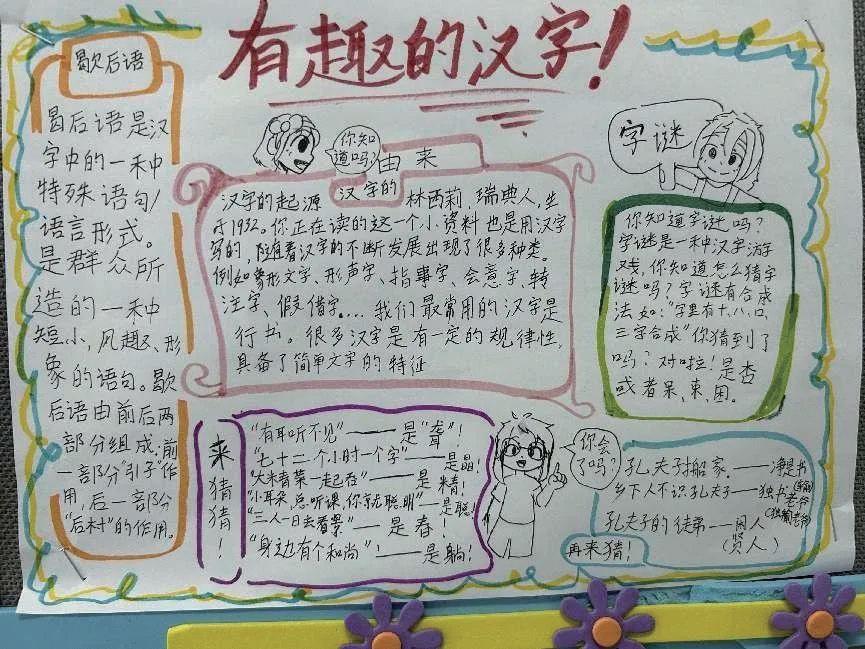 有趣的汉字!
歇后语
曷后语是汉
字中的一种
特殊语句/
语言形式。
是群众所
造的一种
短小,风趣、形
象的语句。歇
后语由前后两
部分组成:前
一部分“引子”作
用,后一部分
“后衬”的作用。
你知
道吗?
由来
汉字的
汉字的起源 林西莉,瑞典人,生
于1932。你正在读的这一个小资料也是用汉字
写的,随着汉字的不断发展出现了很多种类。
例如象形文字、形声字、指事字、会意字、转
注字、假借字....我们最常用的汉字是
行书。很多汉字是有一定的规律性,
具备了简单文字的特征
字谜
你知道字谜吗?
字谜是一种汉字游
戏,你知道怎么猜字
谜吗?字谜有合成
法如:“字里有十、八、口,
三字合成”你猜到了
吗?对啦!是杏
或者呆,束,困。
来猜猜!
“有耳听不见”——是“聋”!
“七十二个小时一个字”——是晶!
“大米青菜一起吞”——是精!
“小耳朵,总听课,你就聪明”——是聪!
“三人一日去看景”——是春!
“身边有个和尚”!——是躺!
你会
了吗?
孔夫子搬家.——净是书
乡下人不识孔夫子——独书老爷
孔夫子的徒弟——闲人
(贤人)
再来猜!